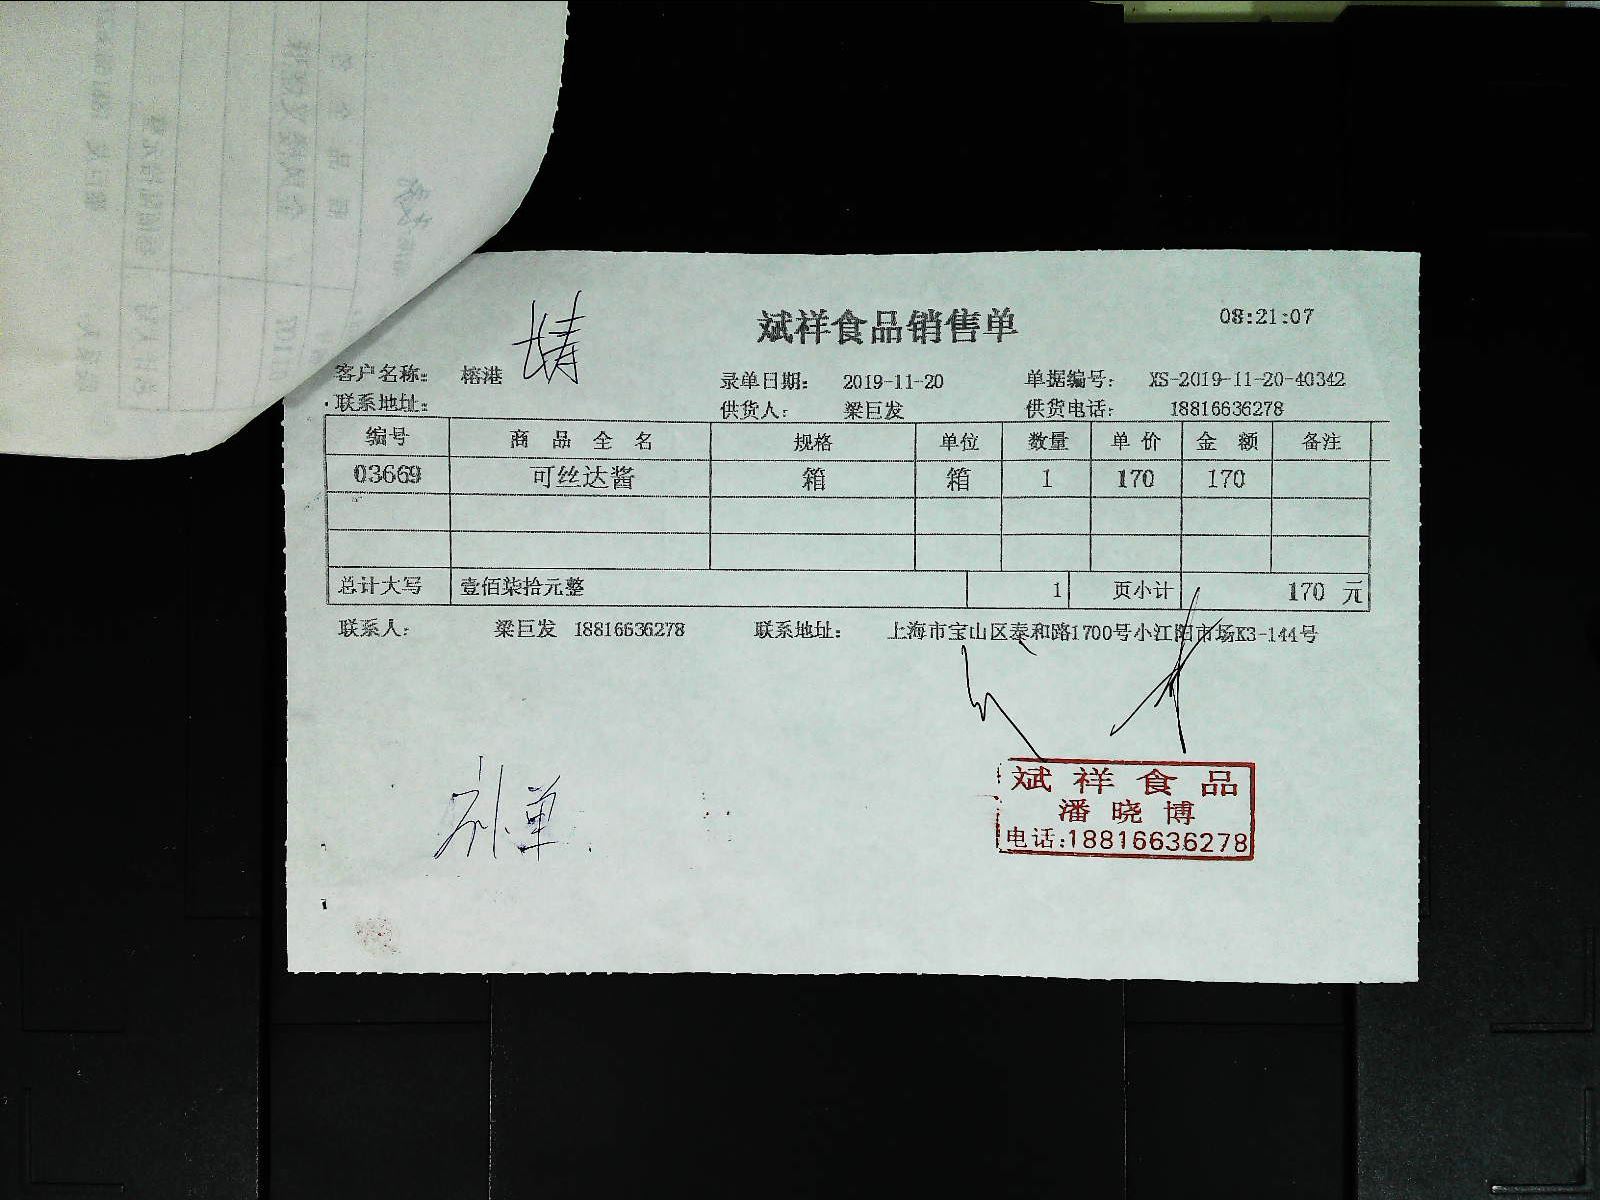 斌祥食品销售单
08:21:07
客户名称: 榕港 录单日期: 2019-11-20 单据编号: XS-2019-11-20-40342
联系地址: 供货人: 梁巨发 供货电话: 18816636278
编号 商品全名 规格 单位 数量 单价 金额 备注
03669 可丝达酱 箱 箱 1 170 170
总计大写 壹佰柒拾元整 1 页小计 170 元
联系人: 梁巨发 18816636278 联系地址: 上海市宝山区泰和路1700号小江阳市场K3-144号
补单
斌祥食品
潘晓博
电话:18816636278